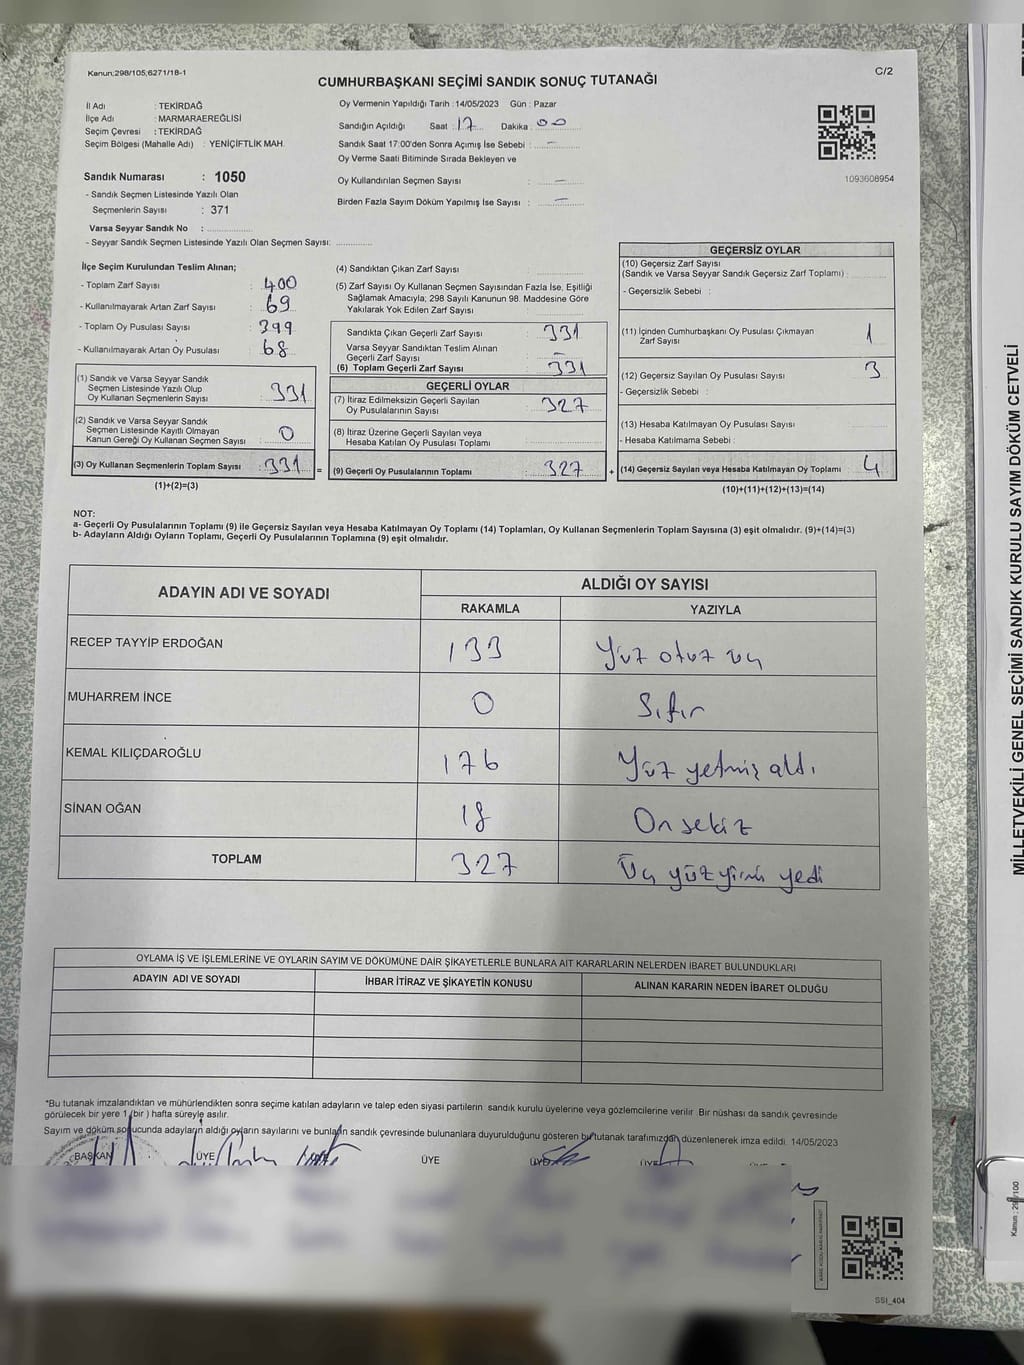 Kanun;298/105;6271/18-1
C/2
CUMHURBAŞKANI SEÇİMİ SANDIK SONUÇ TUTANAĞI
İl Adı : TEKİRDAĞ
İlçe Adı : MARMARAEREĞLİSİ
Seçim Çevresi : TEKİRDAĞ
Seçim Bölgesi (Mahalle Adı) : YENİÇİFTLİK MAH.
Sandık Numarası : 1050
- Sandık Seçmen Listesinde Yazılı Olan
Seçmenlerin Sayısı : 371
Varsa Seyyar Sandık No :
- Seyyar Sandık Seçmen Listesinde Yazılı Olan Seçmen Sayısı:
Oy Vermenin Yapıldığı Tarih :14/05/2023 Gün : Pazar
Sandığın Açıldığı Saat : 17 Dakika : 00
Sandık Saat 17:00'den Sonra Açımış İse Sebebi : -
Oy Verme Saati Bitiminde Sırada Bekleyen ve
Oy Kullandırılan Seçmen Sayısı : -
Birden Fazla Sayım Döküm Yapılmış İse Sayısı : -
1093608954
İlçe Seçim Kurulundan Teslim Alınan;
- Toplam Zarf Sayısı : 400
- Kullanılmayarak Artan Zarf Sayısı : 69
- Toplam Oy Pusulası Sayısı : 399
- Kullanılmayarak Artan Oy Pusulası : 68
(1) Sandık ve Varsa Seyyar Sandık
Seçmen Listesinde Yazılı Olup
Oy Kullanan Seçmenlerin Sayısı : 331
(2) Sandık ve Varsa Seyyar Sandık
Seçmen Listesinde Kayıtlı Olmayan
Kanun Gereği Oy Kullanan Seçmen Sayısı : 0
(3) Oy Kullanan Seçmenlerin Toplam Sayısı : 331 =
(1)+(2)=(3)
(4) Sandıktan Çıkan Zarf Sayısı :
(5) Zarf Sayısı Oy Kullanan Seçmen Sayısından Fazla İse, Eşitliği
Sağlamak Amacıyla; 298 Sayılı Kanunun 98. Maddesine Göre
Yakılarak Yok Edilen Zarf Sayısı :
Sandıkta Çıkan Geçerli Zarf Sayısı : 331
Varsa Seyyar Sandıktan Teslim Alınan
Geçerli Zarf Sayısı : -
(6) Toplam Geçerli Zarf Sayısı : 331
GEÇERLİ OYLAR
(7) İtiraz Edilmeksizin Geçerli Sayılan
Oy Pusulalarının Sayısı : 327
(8) İtiraz Üzerine Geçerli Sayılan veya
Hesaba Katılan Oy Pusulası Toplamı :
(9) Geçerli Oy Pusulalarının Toplamı : 327 +
GEÇERSİZ OYLAR
(10) Geçersiz Zarf Sayısı
(Sandık ve Varsa Seyyar Sandık Geçersiz Zarf Toplamı) :
- Geçersizlik Sebebi :
(11) İçinden Cumhurbaşkanı Oy Pusulası Çıkmayan
Zarf Sayısı : 1
(12) Geçersiz Sayılan Oy Pusulası Sayısı : 3
- Geçersizlik Sebebi :
(13) Hesaba Katılmayan Oy Pusulası Sayısı :
- Hesaba Katılmama Sebebi :
(14) Geçersiz Sayılan veya Hesaba Katılmayan Oy Toplamı : 4
(10)+(11)+(12)+(13)=(14)
NOT:
a- Geçerli Oy Pusulalarının Toplamı (9) ile Geçersiz Sayılan veya Hesaba Katılmayan Oy Toplamı (14) Toplamları, Oy Kullanan Seçmenlerin Toplam Sayısına (3) eşit olmalıdır. (9)+(14)=(3)
b- Adayların Aldığı Oyların Toplamı, Geçerli Oy Pusulalarının Toplamına (9) eşit olmalıdır.
ADAYIN ADI VE SOYADI ALDIĞI OY SAYISI
RAKAMLA YAZIYLA
RECEP TAYYİP ERDOĞAN 133 Yüz otuz üç
MUHARREM İNCE 0 Sıfır
KEMAL KILIÇDAROĞLU 176 Yüz yetmiş altı
SİNAN OĞAN 18 On sekiz
TOPLAM 327 Üç yüz yirmi yedi
OYLAMA İŞ VE İŞLEMLERİNE VE OYLARIN SAYIM VE DÖKÜMÜNE DAİR ŞİKAYETLERLE BUNLARA AİT KARARLARIN NELERDEN İBARET BULUNDUKLARI
ADAYIN ADI VE SOYADI İHBAR İTİRAZ VE ŞİKAYETİN KONUSU ALINAN KARARIN NEDEN İBARET OLDUĞU
*Bu tutanak imzalandıktan ve mühürlendikten sonra seçime katılan adayların ve talep eden siyasi partilerin sandık kurulu üyelerine veya gözlemcilerine verilir. Bir nüshası da sandık çevresinde
görülecek bir yere 1 (bir ) hafta süreyle asılır.
Sayım ve döküm sonucunda adayların aldığı oyların sayılarını ve bunların sandık çevresinde bulunanlara duyurulduğunu gösteren bu tutanak tarafımızdan düzenlenerek imza edildi. 14/05/2023
BAŞKAN ÜYE ÜYE ÜYE ÜYE
SSI_404
MİLLETVEKİLİ GENEL SEÇİMİ SANDIK KURULU SAYIM DÖKÜM CETVELİ